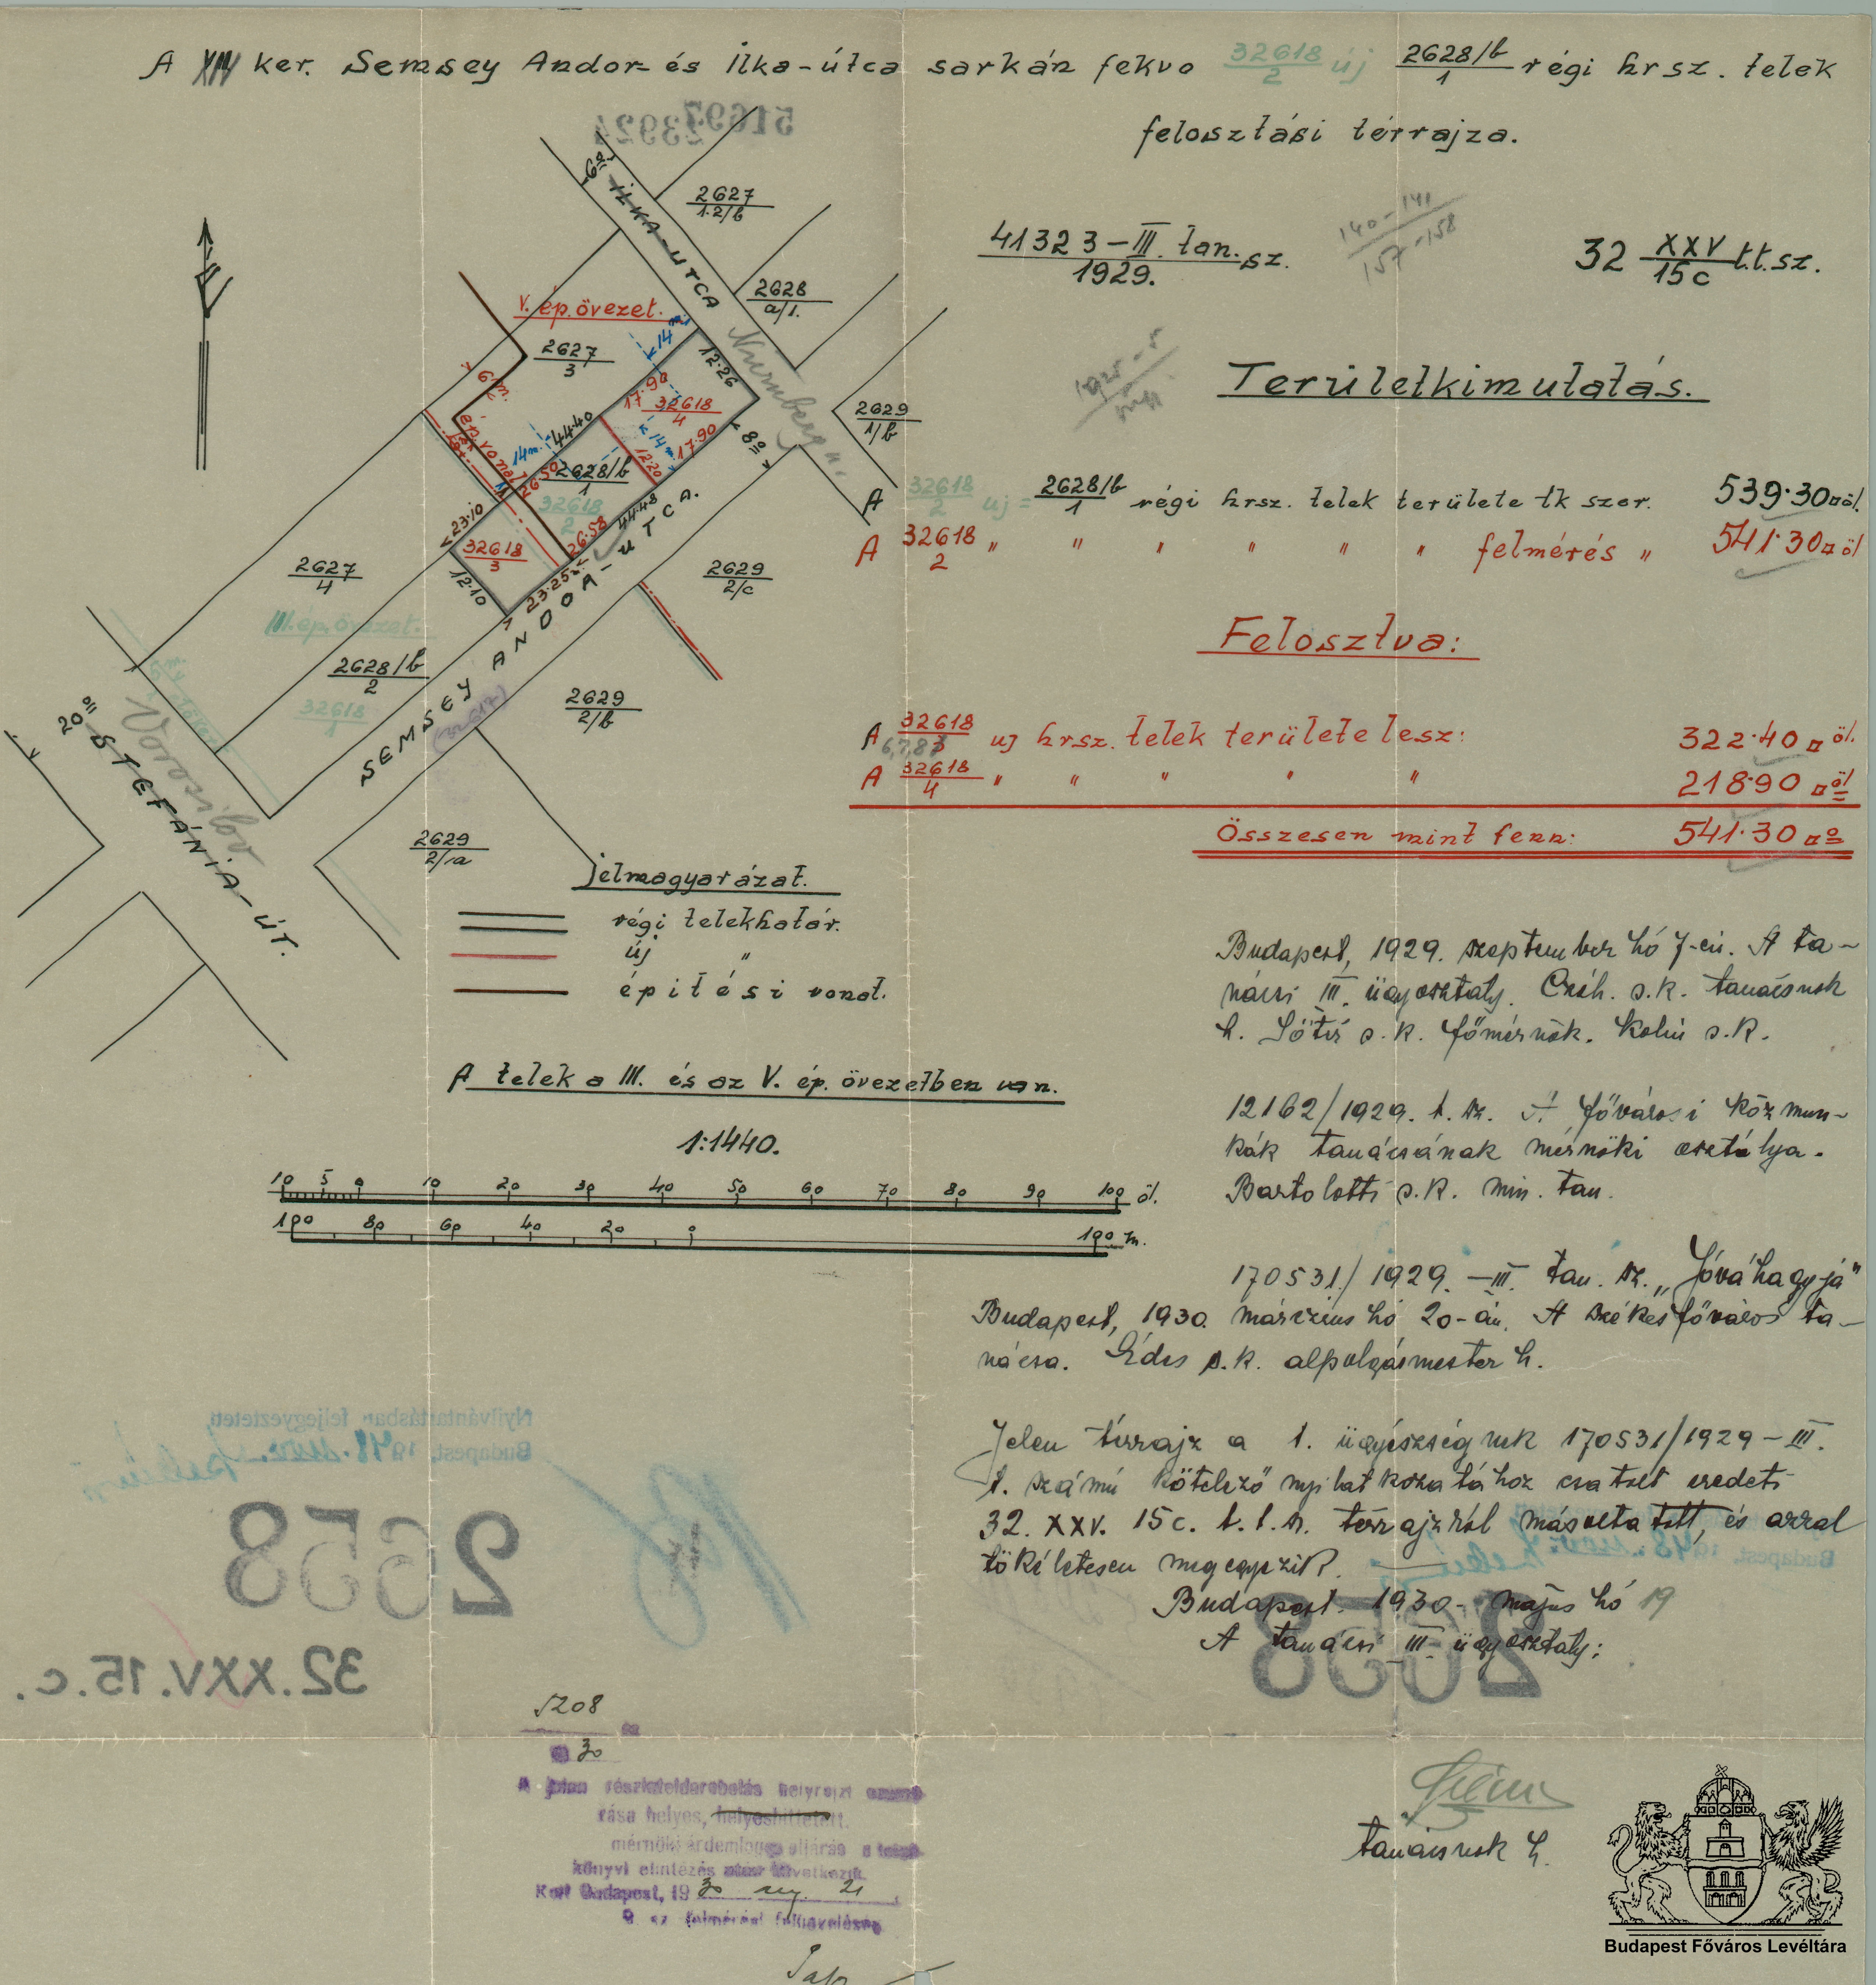 A XIV ker. Semsey Andor- és Ilka-útca sarkán fekvo 32618/2 új 2628/b/1 régi hrsz. telek
felosztási térrajza.
51697
23924
41323-III. tan. sz.
1929.
140-141
157-158
32 XXV/15c t.t.sz.
Területkimutatás.
A 32618/2 uj = 2628/b/1 régi hrsz. telek területe tk szer. 539·30 □öl.
A 32618/2 " " " " " " felmérés " 541·30 □öl
Felosztva:
A 32618/3 uj hrsz. telek területe lesz: 322·40 □öl.
6,7,8
A 32618/4 " " " " " 218·90 □öl
Összesen mint fenn: 541·30 □º
6º
ILKA-UTCA
Nürnberg u.
2627/1.2/b
2628/a/1.
2629/1/b
V. ép. övezet.
2627/3
6 m.
14 m.
12·26
17·90
32618/4
14 m.
17·90
12·20
8º
ép. vonal
14 m.
44·40
26·50
2628/b/1
32618/2
26·58
44·48
23·10
32618/3
12·10
23·25
2627/4
III. ép. övezet.
2628/b/2
32618
SEMSEY ANDOR-UTCA.
(32612)
2629/2/c
2629/2/b
2629/2/a
20 öl
STEFÁNIA-ÚT.
Vorosilov
Jelmagyarázat.
régi telekhatár.
új "
építési vonal.
A telek a III. és az V. ép. övezetben van.
1:1440.
10 5 0 10 20 30 40 50 60 70 80 90 100 öl.
100 80 60 40 20 0 100 m.
Budapest, 1929. szeptember hó 7-én. A ta-
nácsi III. ügyosztály. Cséh. s.k. tanácsnok
h. s.k. főmérnök. s.k.
12162/1929. t. sz. A fővárosi közmun-
kák tanácsának mérnöki osztálya.
Bartolotti s.k. min. tan.
170531/1929.-III. tan. sz. „Jóváhagyja"
Budapest, 1930. március hó 20-án. A székesfőváros ta-
nácsa. s.k. alpolgármester h.
Jelen térrajz a t. ügyészségnek 170531/1929-III.
t. számú kötelező nyilatkozatához csatolt eredeti
32. XXV. 15c. t.t.sz. térrajzról másoltatott, és azzal
tökéletesen megegyezik.
Budapest. 1930. május hó 19
A tanácsi III. ügyosztály:
tanácsnok h.
Nyilvántartásban feljegyeztetett
Budapest, 1948. nov.
2658
32.XXV.15.c.
Budapest, 1948. nov.
2658
5208
30
A jelen részletfeldarabolás helyrajzi számo-
zása helyes, helyesbíttetett.
mérnöki
könyvi elintézés után következik.
Kelt Budapest, 1930 21
felmérési felügyelőség
Budapest Főváros Levéltára